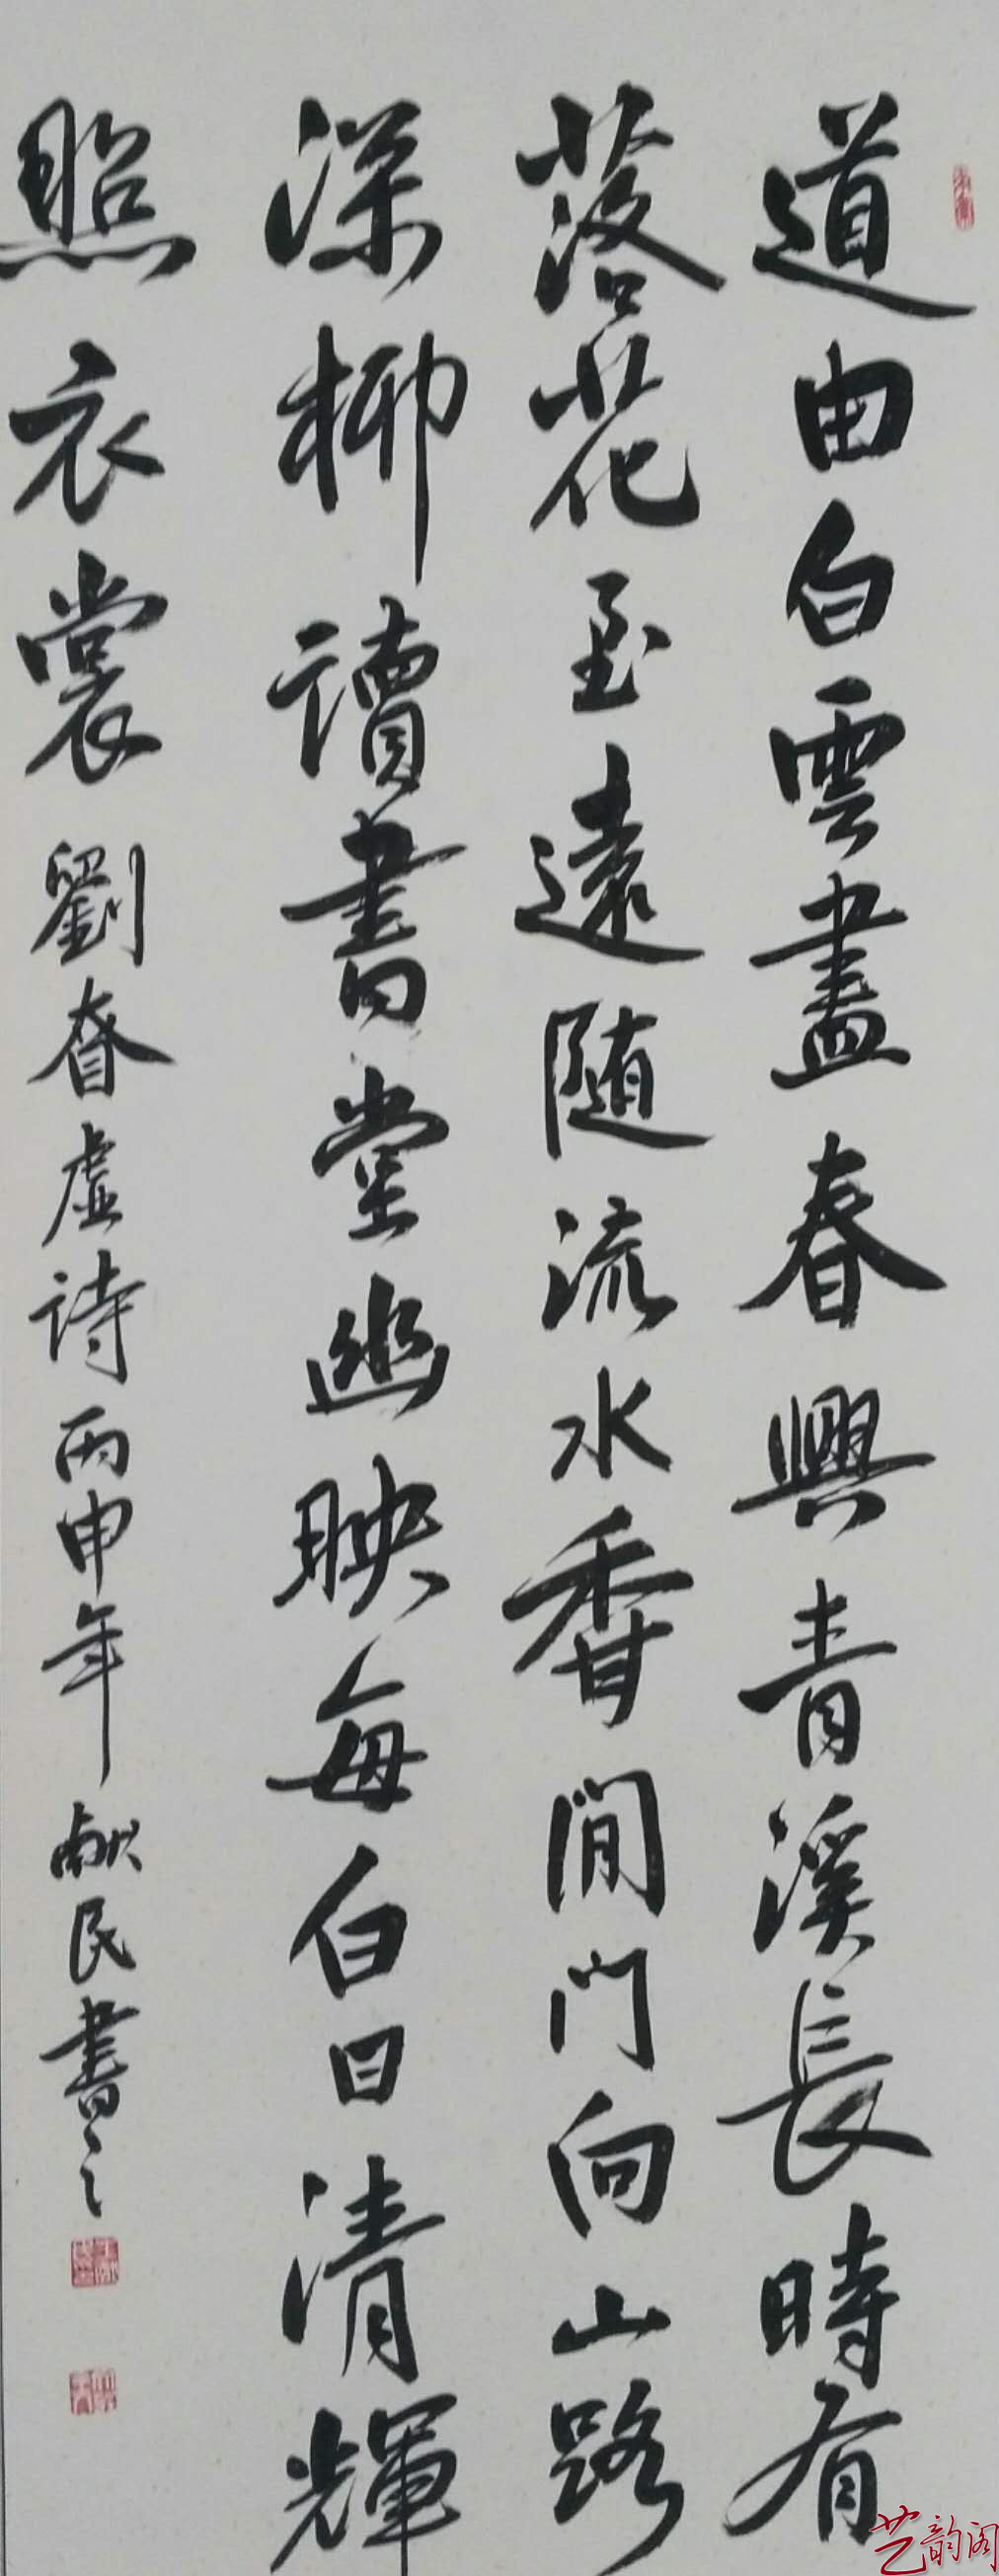 道由白雲盡春與青溪長時有
落花至遠隨流水香閒門向山路
深柳讀書堂幽映每白日清輝
照衣裳劉眘虛詩丙申年獻民書之
艺韵阁